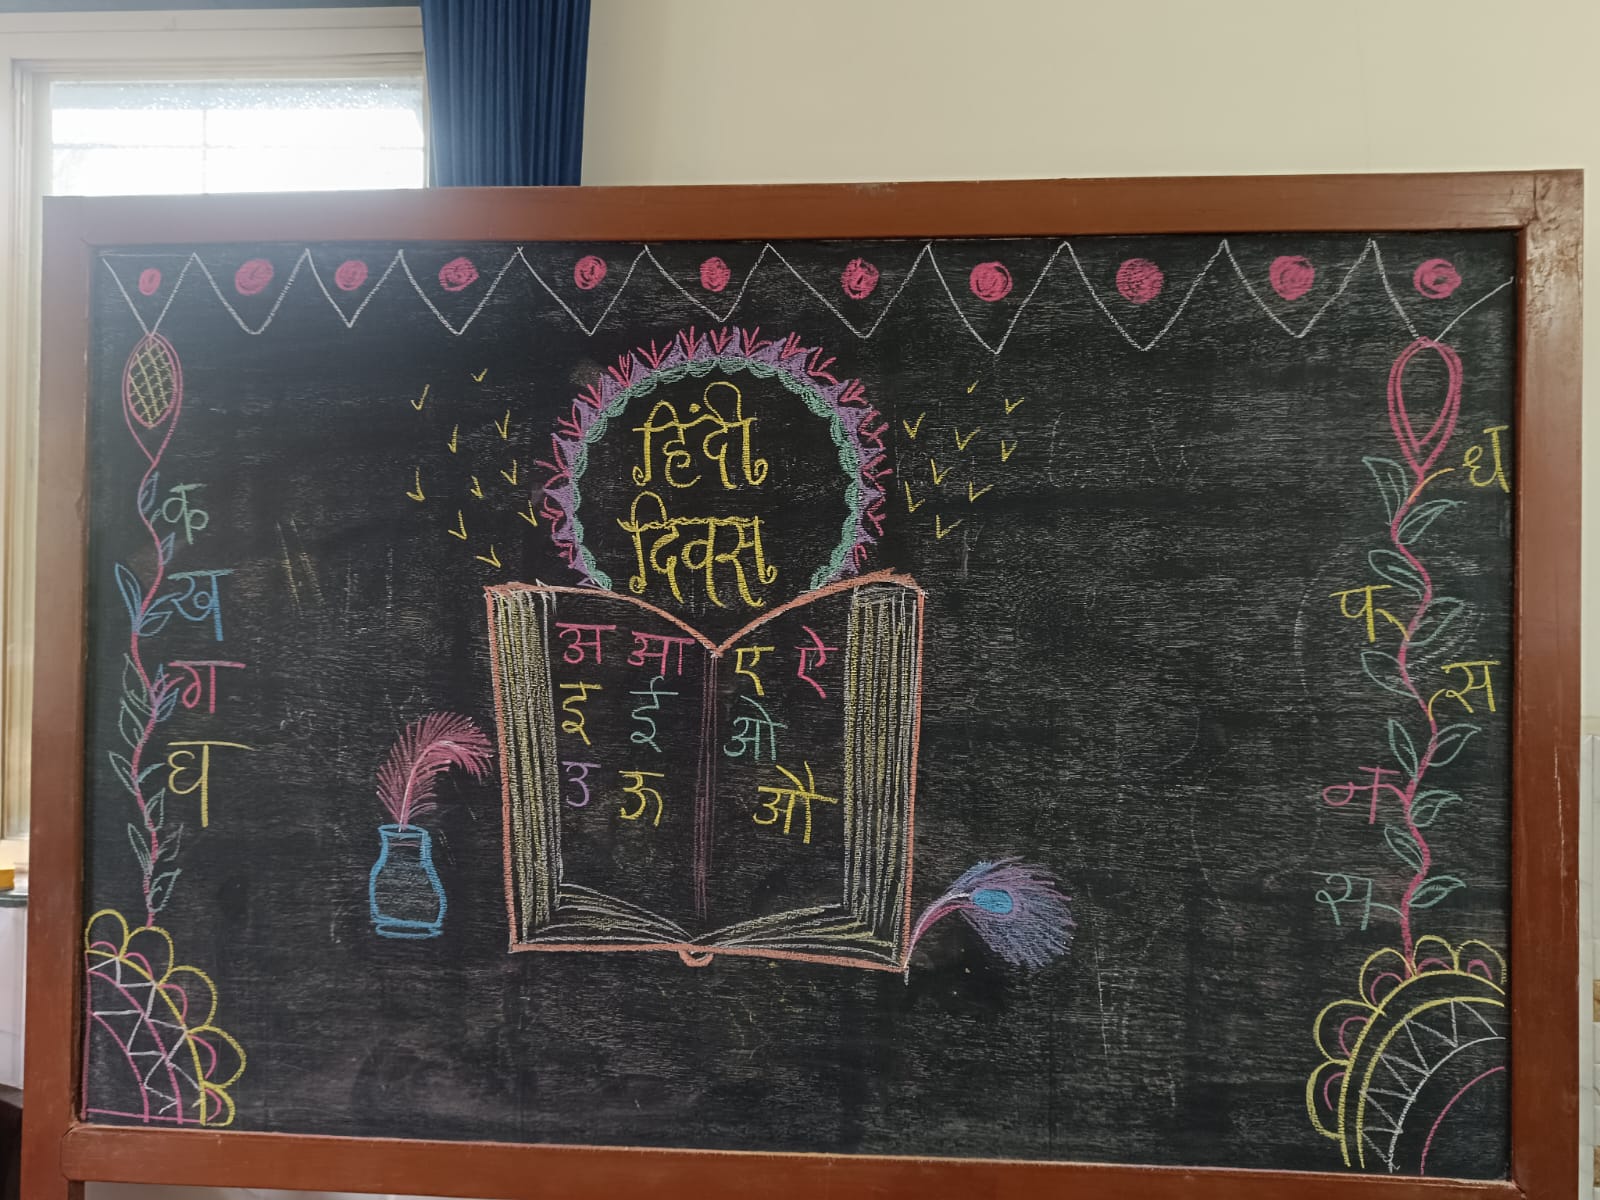 हिंदी
दिवस
अ आ ए ऐ
इ ई ओ
उ ऊ औ
क
ख
ग
घ
ध
फ
स
क
स